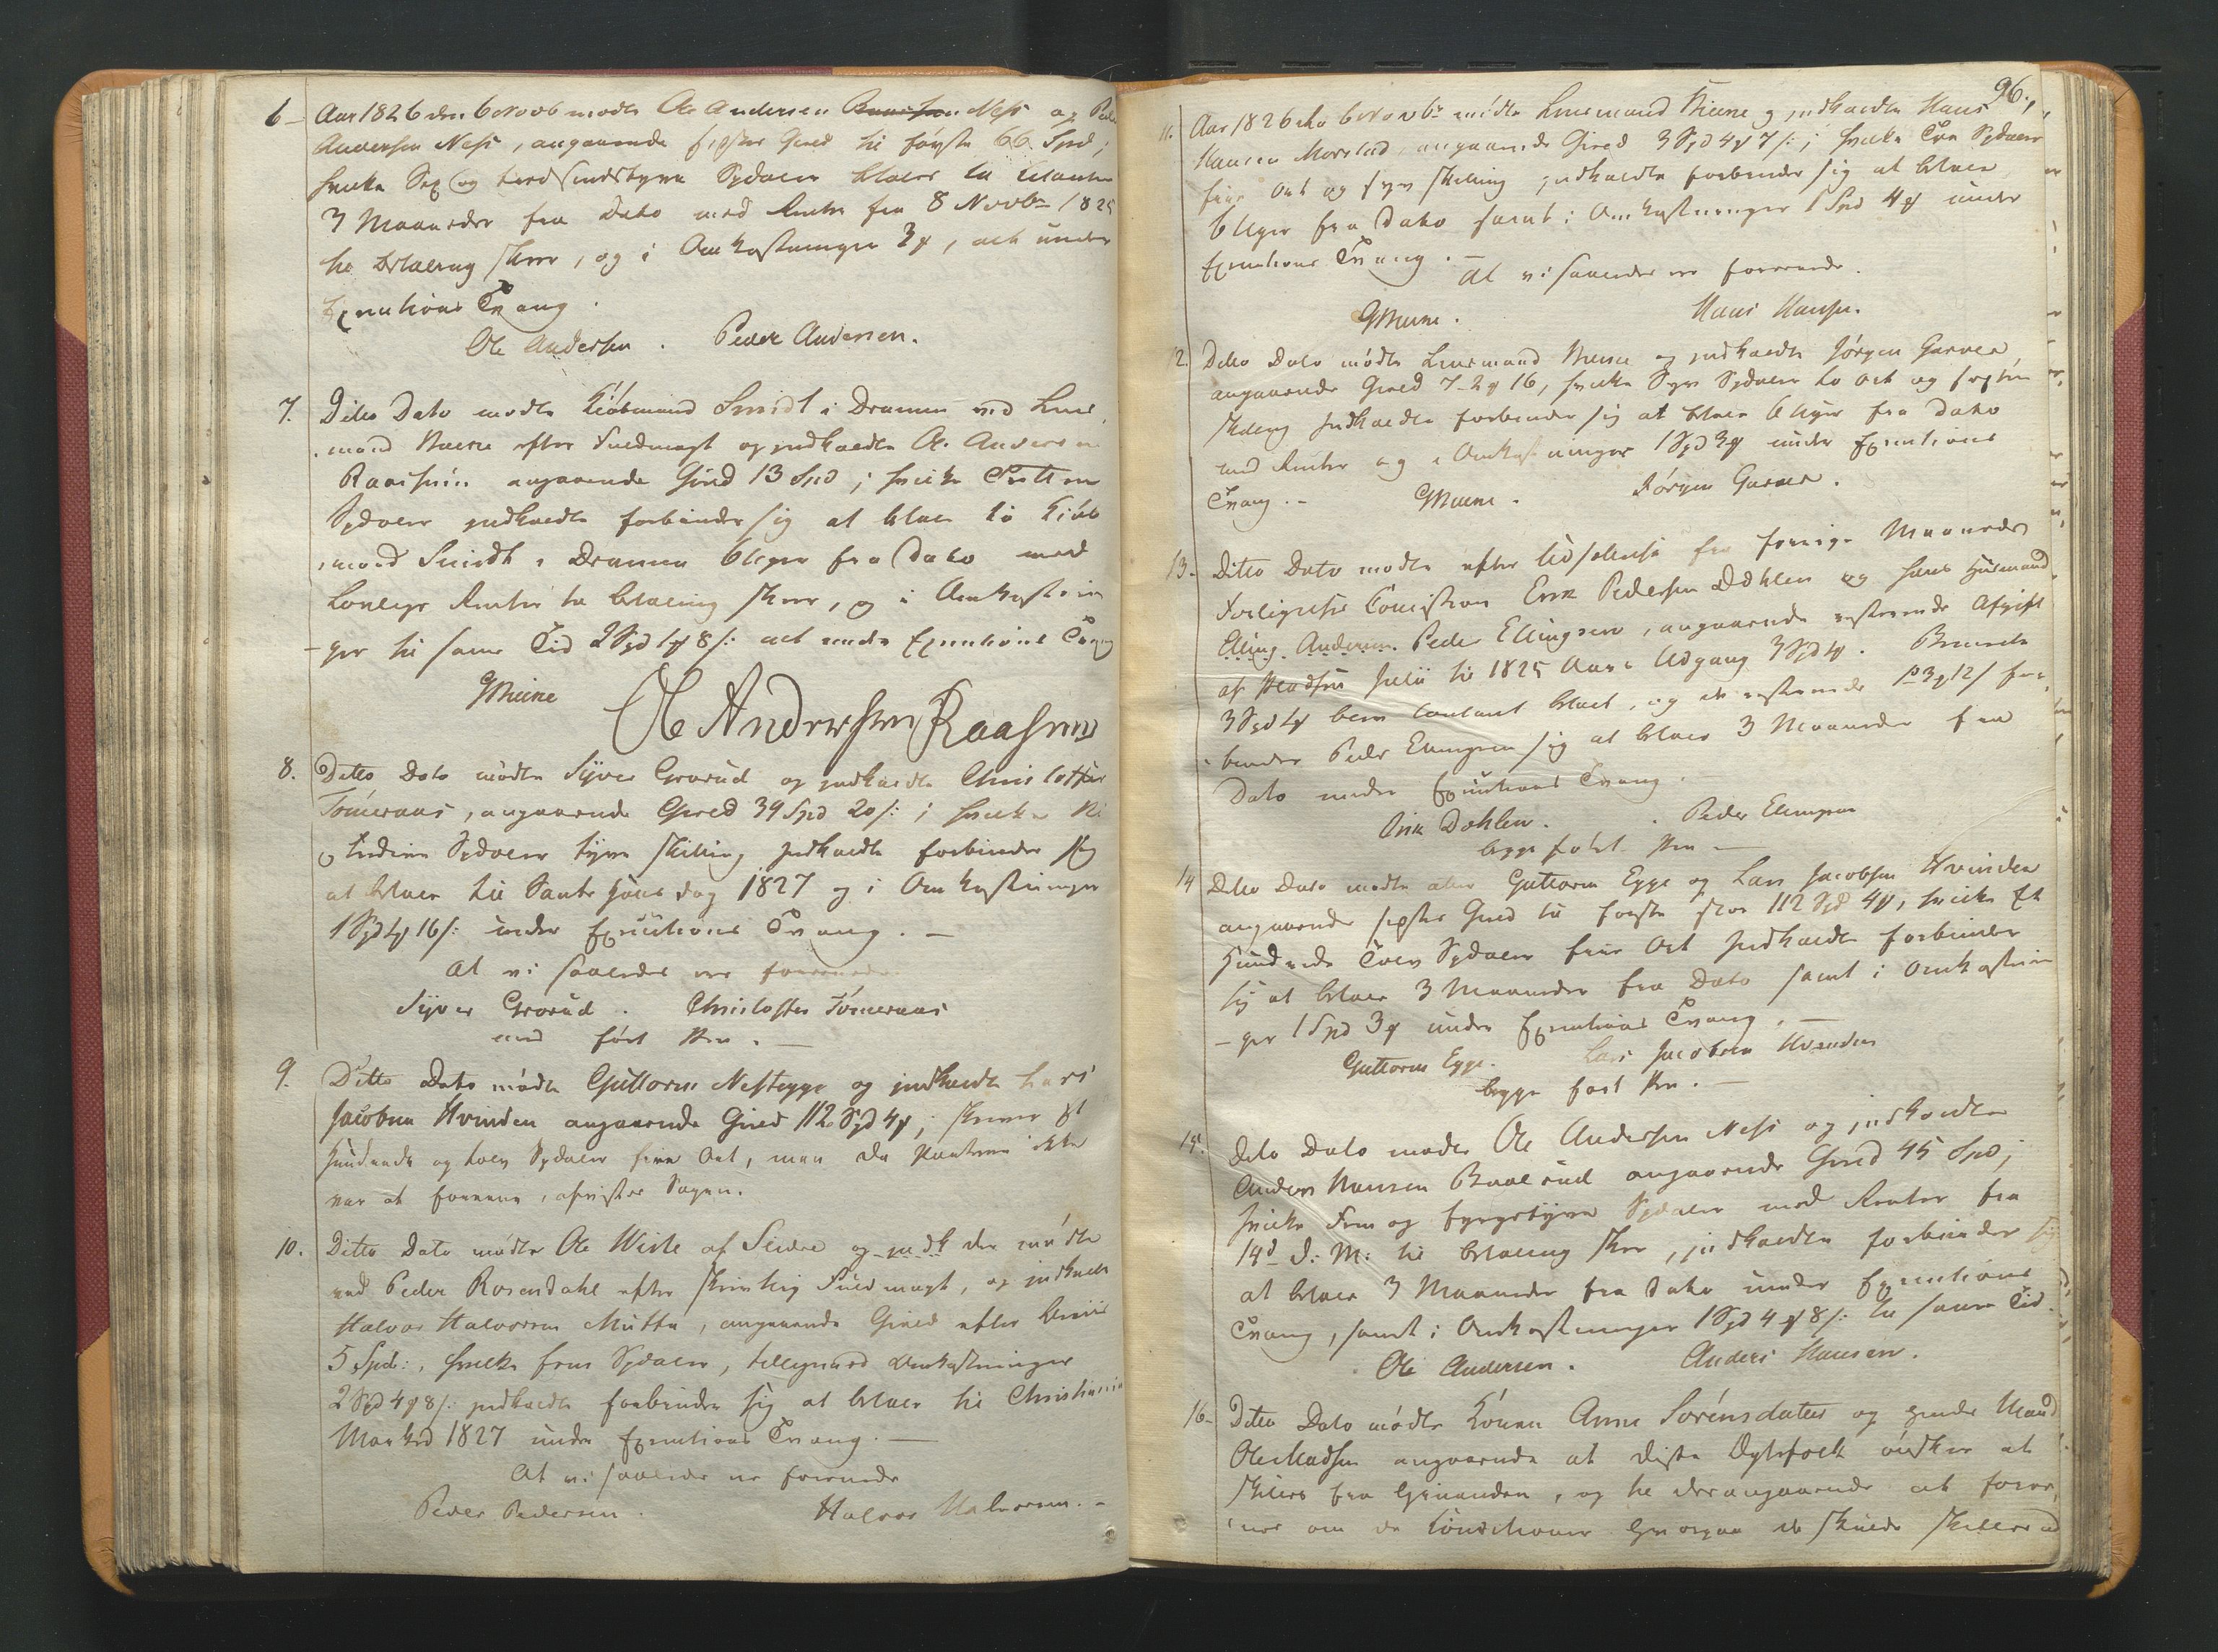 6 Aar 1826 den 6 Novb modte Ole Andersen Ness og Peder
Andersen Ness, angaaende sidstes Gield til første 66 Spd;
hvilke Sex og tredsindstyve Spdaler betales
3 Maaneder fra Dato med Renter fra 8 Novbr 1825
til betaling skeer, og i Omkostninger 3 ort, alt under
Executions Tvang.
Ole Andersen. Peder Andersen.
7. Ditto Dato modte Kiøbmand Smidt i Drammen ved Lens-
mand Mune efter Fuldmagt og indkaldte Ole Andersen
Raasuen angaaende Gield 13 Spd; hvilke Tretten
Spdaler indkaldte forbinder sig at betale til Kiøb-
mand Smidt i Drammen 6 Uger fra Dato med
Lovlige Renter til betaling skeer, og i Omkostnin-
ger til samme Tid 2 Spd 1 ort 8 s: alt under Executions Tvang
GMune Ole Andersen Raasuen
8. Ditto Dato mødte Syver Grorud og indkaldte Christoffer
Tømeraas, angaaende Gield 39 Spd 20 s: ; hvilke Ni
og tredive Spdaler tyve Skilling indkaldte forbinder sig
at betale til Sante Hans dag 1827 og i Omkostninger
1 Spd 1 ort 16 s: under Executions Tvang. —
At vi saaledes ere forenede
Syver Grorud. Christoffer Tømeraas
med ført Pen. —
9. Ditto Dato mødte Guttorm Nestegge og indkaldte Lars
Jacobsen Hvinden angaaende Gield 112 Spd 4 ort; skriver Et
Hundrede og tolv Spdaler fire Ort, men da Parterne ikke
var at forene, afvistes Sagen.
10. Ditto Dato mødte Ole Wiste af Slidre og indk der mødte
ved Peder Rosendahl efter skriftlig Fuldmagt, og indkaldte
Halvor Halvorsen Mutta, angaaende Gield efter Beviis
5 Spd:, hvilke fem Spdaler, tilligemed Omkostninger
2 Spd 4 ort 8 s: indkaldte forbinder sig at betale til Christiania
Marked 1827 under Executions Tvang. —
At vi saaledes er forenede
Peder Pedersen. Halvor Halvorsen. -
96.
11. Aar 1826 den 6 Novbr mødte Lensmand Mune og indkaldte Hans
Hansen Morstad, angaaende Gield 3 Spd 4 ort 7 s: ; hvilke Tre Spdaler
fire Ort og syv Skilling indkaldte forbinder sig at betale
6 Uger fra Dato samt i Omkostninger 1 Spd 4 ort under
Executions Tvang. —
At vi saaledes ere forenede.
GMune. Hans Hansen.
12. Ditto Dato mødte Lensmand Mune og indkaldte Jørgen Garver,
angaaende Gield 7-2 ort 16, hvilke Syv Spdaler to Ort og sexten
Skilling Indkaldte forbinder sig at betale 6 Uger fra Dato
med Renter og i Omkostninger 1 Spd 3 ort under Executions
Tvang. - GMune. Jørgen Garver.
13. Ditto Dato modte efter Udsettelse fra forrige Maaneds
Forligelses Comission Erik Pedersen Dæhlen og hans Huusmand
Elling Andersen Peder Ellingsen, angaaende resterende Afgift
af Pladsen til 1825 Aars Udgang 3 Spd 4 ort.
3 Spd 4 ort blev Contant betalt, og de resterende for-
binder Peder Ellingsen sig at betale 3 Maaneder fra
Dato under Executions Tvang.
Erik Dæhlen. Peder Ellingsen
begge ført Pen —
14 Ditto Dato modte atter Guttorm Egge og Lars Jacobsen Hvinden
angaaende sidstes Gield til første stor 112 Spd 4 ort, hvilke Et
Hundrede Tolv Spdaler fire Ort Indkaldte forbinder
sig at betale 3 Maaneder fra Dato samt i Omkostnin-
ger 1 Spd 3 ort under Executions Tvang. —
Guttorm Egge. Lars Jacobsen Hvinden
begge ført Pen. —
15. Ditto Dato modte Ole Andersen Ness og indkaldte
Anders Hansen Baalerud angaaende Gield 45 Spd;
hvilke Fem og fyrgetyve Spdaler med Renter fra
14d d: M: til betaling skeer, indkaldte forbinder sig
at betale 3 Maaneder fra Dato under Executions
Tvang, samt i Omkostninger 1 Spd 4 ort 8 s: til samme Tid.
Ole Andersen. Anders Hansen.
16- Ditto Dato mødte Konen Anne Sørensdatter og hendes Mand
Ole Madsen angaaende at disse Ægtefolk ønsker at
skilles fra hinanden, og til derangaaende at foree-
nes om de Conditioner hvorpaa de skulde skilles ad